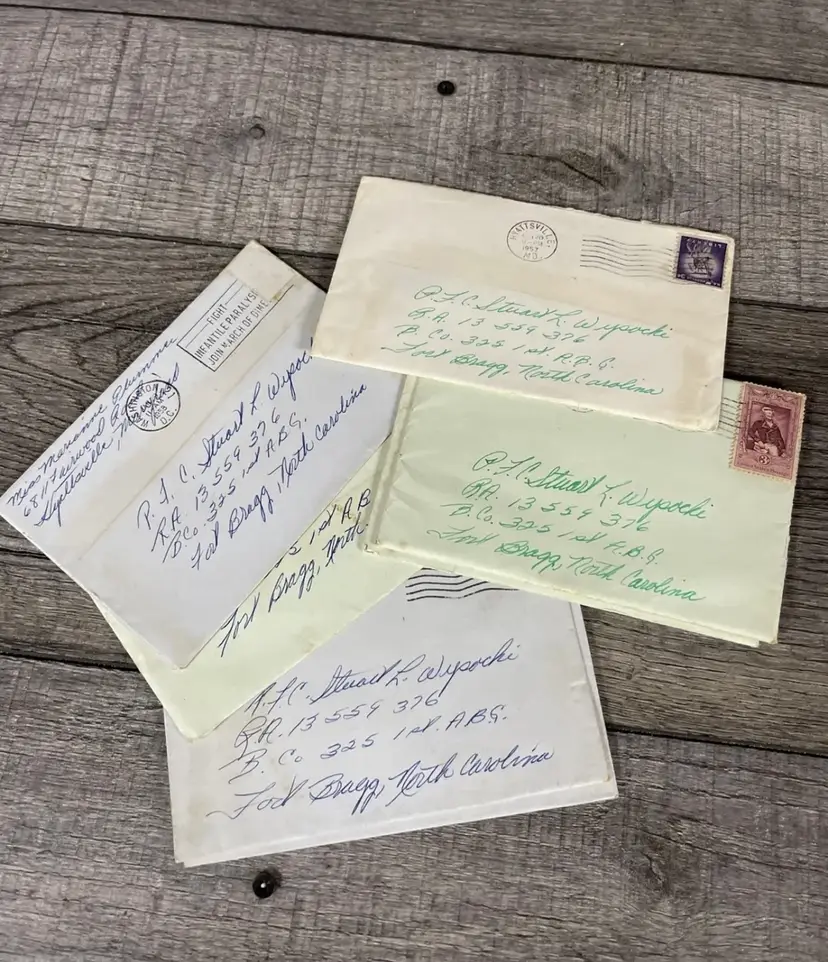 HYATTSVILLE
1957
MD.
LIBERTY
P.F.C. Stuart L. Wysocki
R.A. 13 559 376
B. Co. 325 1st. A.B.G.
Fort Bragg, North Carolina
3¢
P.F.C. Stuart L. Wysocki
R.A. 13 559 376
B. Co. 325 1st A.B.G.
Fort Bragg, North Carolina
FIGHT
INFANTILE PARALYSIS
JOIN MARCH OF DIMES
WASHINGTON
D.C.
Miss Marianne Plummer
6811 Fairwood
Hyattsville
P. F. C. Stuart L. Wysoc
R.A. 13 559 376
B Co. 325 1st A.B.G.
Fort Bragg, North Carolina
1st A B
Fort Bragg, North
P.F.C. Stuart L. Wysocki
R.A. 13 559 376
B. Co 325 1st. A.B.G.
Fort Bragg, North Carolina